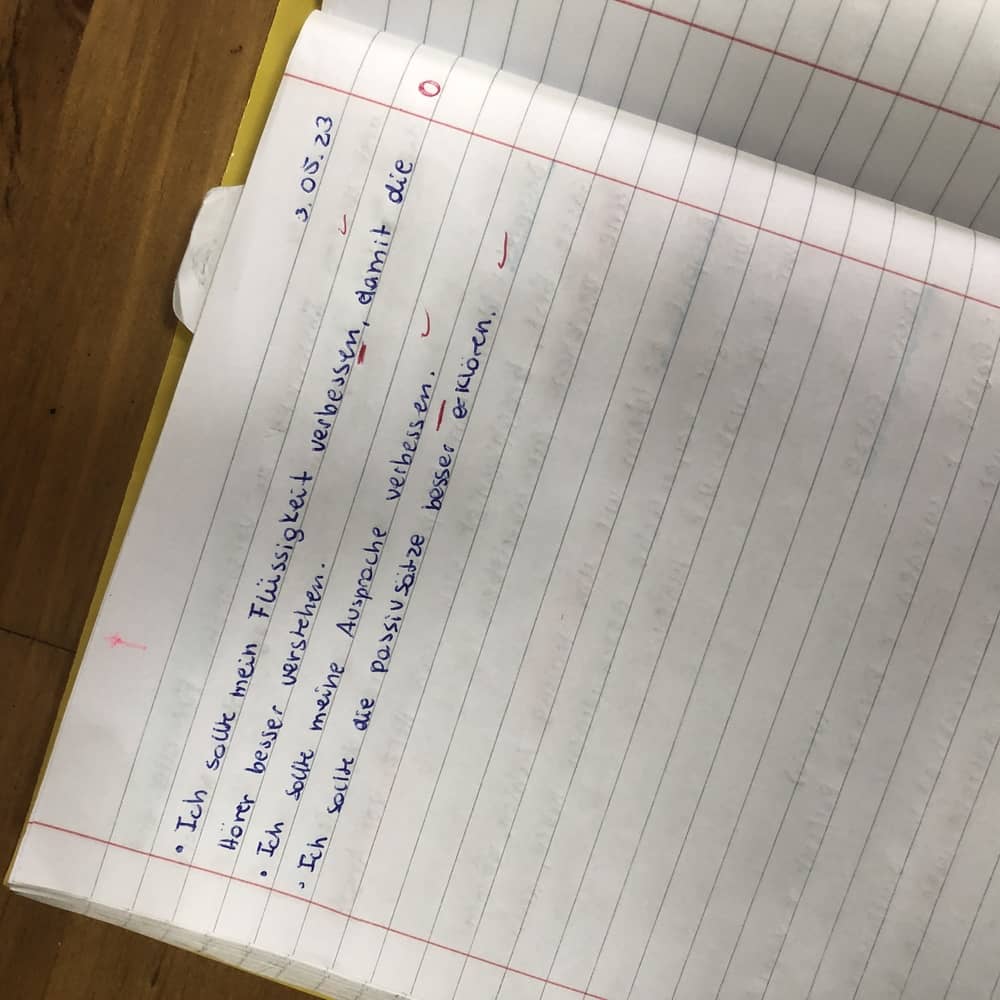 3.05.23
• Ich sollte mein Flüssigkeit verbessen, damit die
Hörer besser verstehen.
• Ich sollte meine Aussprache verbessen.
• Ich sollte die passivsätze besser erklären.